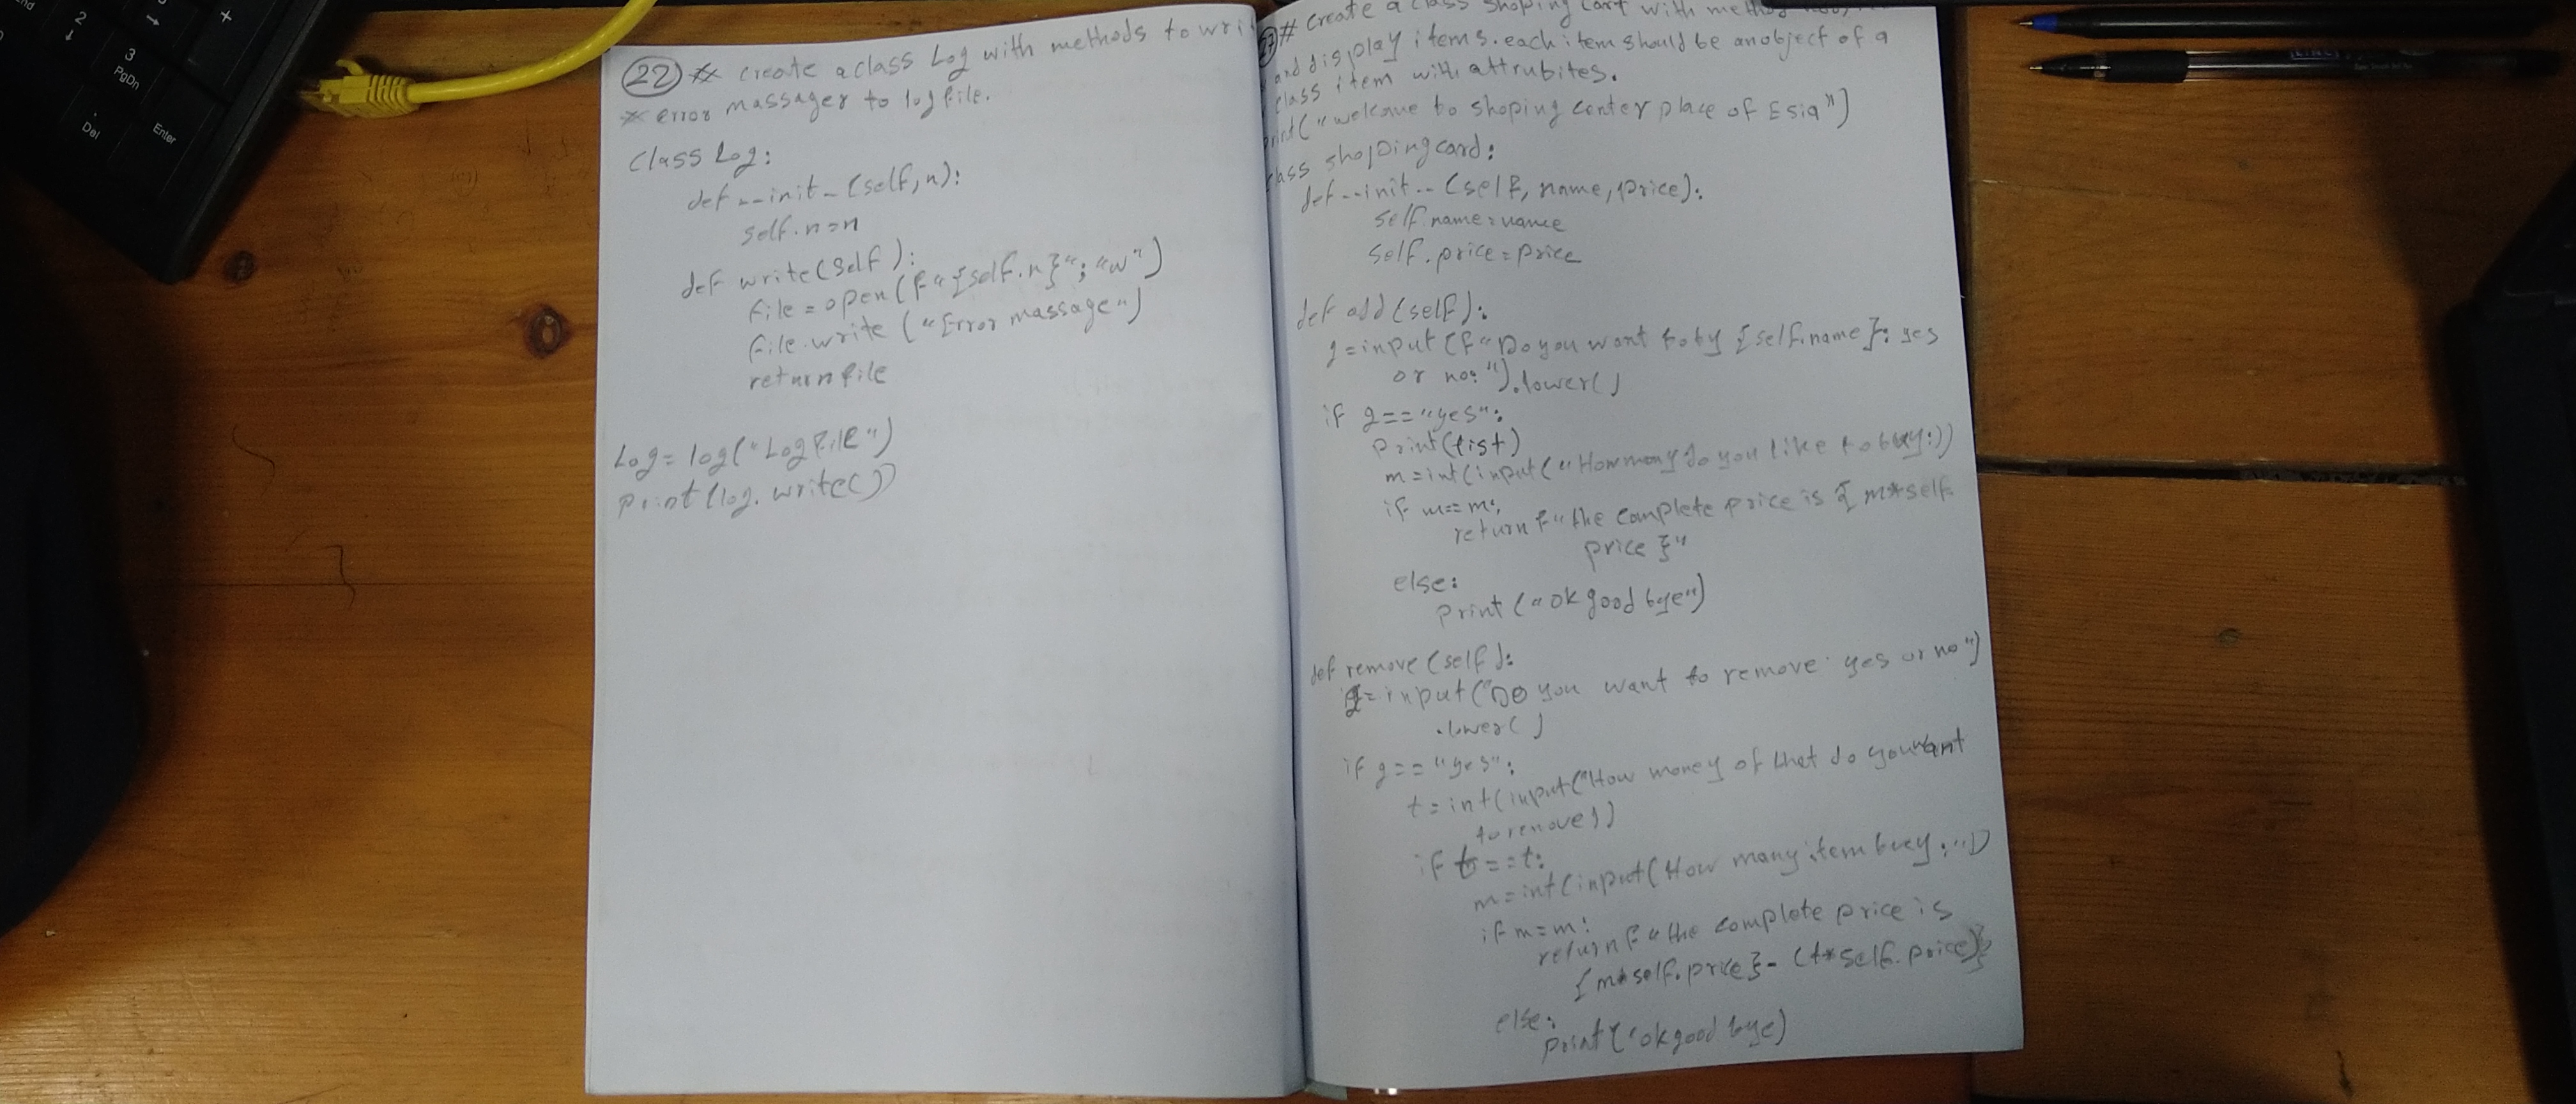 (22) ** create a class Log with methods to wri
* error massager to log file.
class Log:
def --init-(self,n):
self.n=n
def write(self):
file = open(f"{self.n}", "w")
file.write("Error massage")
return file
Log = log("Log File")
print(log.write())
# create a class shoping cart with
and display items. each item should be an object of a
class item with attrubites.
print("welcome to shoping center place of Esia")
class shoping card:
def --init--(self, name, price):
self.name=name
self.price=price
def add(self):
g=input(f"Do you want to by {self.name}: yes
or no:").lower()
if g=="yes":
print(tist)
m=int(input("How many do you like to buy:))
if m==m:
return f"the complete price is {m*self
price}"
else:
print("ok good bye")
def remove(self):
g=input("Do you want to remove: yes or no")
.lower()
if g=="yes":
t=int(input("How money of that do you want
to remove))
if t==t:
m=int(input(How many item buy:"))
if m=m:
return f"the complate price is
{m*self.price}-(t*self.price)}
else:
print("ok good bye)
Del
3
PgDn
Enter
2
+